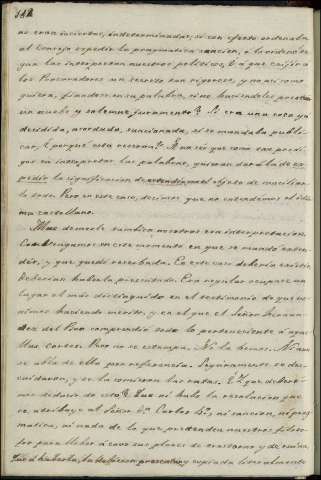 no eran inciertas, indeterminadas; si con efecto ordenaba
al Consejo expedir la pragmática sancion, ó la ordenó en
que las interpretan nuestros políticos, ¿á qué exijir a
los Procuradores un secreto tan rigoroso, y no asi como
quiera, fiandose en su palabra, sino haciendoles prestar
un nuebo y solemne juramento? Si era una cosa ya
decidida, acordada, sancionada, si se mandaba publi-
car, ¿porque esta reserva? A no ser que como son prodi-
gos en interpretar las palabras, quieran dar á la de ex-
pedir la significacion de
todo. Pero en este caso, decimos que no entendemos el idio-
ma castellano.
Mas demosle tambien nosotros una interpretacion.
Combengamos en este momento en que se mandó esten-
der, y que quedó reserbada. En este caso debería existir,
deberian haberla presentado. Era regular ocupase un
lugar el mas distinguido en el testimonio de que ve-
nimos haciendo mérito, y en el que el Señor Hernan-
dez del Pino comprendió todo lo perteneciente á aque-
llas Cortes. Pero no se estampa. No la hemos. Ni aun
se abla de ella por referencia. Seguramente se des-
cuidaron, y se la comieron las ratas. ¿Y que debere-
mos deducir de esto? Que ni hubo la resolucion que
se atribuye al Señor Dn. Carlos 4º, ni sancion, ni prag-
matica, ni nada de lo que pretenden nuestros filoso-
fos para llebar á cavo sus planes de trastorno y de ruina.
Que á haberla, la hubieran presentado y copiada literalmente